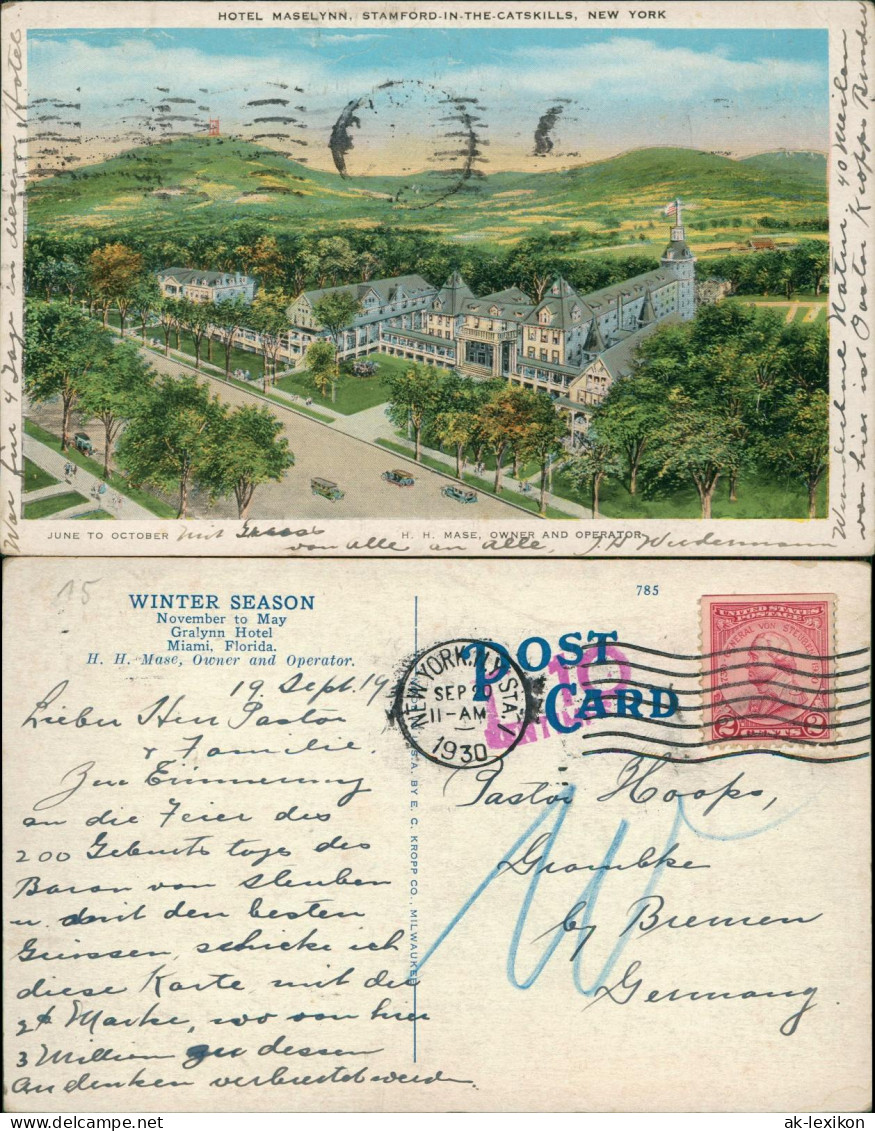 HOTEL MASELYNN, STAMFORD-IN-THE-CATSKILLS, NEW YORK
War für 4 Tage in dieser Hotel
Wundschne Natur 40 Meilen
von hier ist Oscar Kropps Runder
JUNE TO OCTOBER
H. H. MASE, OWNER AND OPERATOR
mit
von alle an alle, J.H Wiedermann
15
WINTER SEASON
November to May
Gralynn Hotel
Miami, Florida.
H. H. Mase, Owner and Operator.
785
POST CARD
NEW YORK, N.Y. STA.
SEP 20
11-AM
1930
UNITED STATES POSTAGE
GENERAL VON STEUBEN
2 CENTS 2
10
S.A. BY E. C. KROPP CO., MILWAUKEE
19 Sept. 19
Lieber Herr Pastor
& Familie.
Zur Erinnerung
an die Feier des
200 Geburts tags des
Baron von Steuben
u. damit den besten
Grüssen, schicke ich
diese Karte mit der
2¢ Marke, wo von hier
3 Million zu dessen
Andenken verbreitet werden
Pastor Hoops,
Grambke
by Bremen
Germany
ak-lexikon